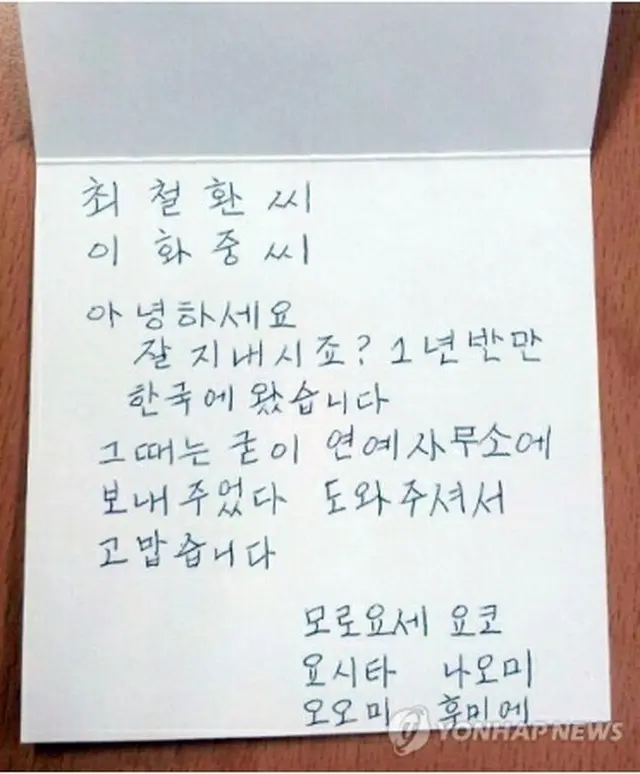 최 철 환 씨
이 화 중 씨
아 녕하세요
잘 지내시죠? 1년반만
한국에 왔습니다
그때는 굳이 연예사무소에
보내주었다 도와주셔서
고맙습니다
모로요세 요코
요시타 나오미
오오미 훅미에
YONHAPNEWS